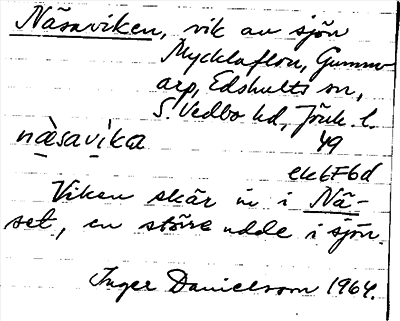 Näsaviken, vik av sjön
Mycklaflon, Gummarp,
Edshults sn,
S. Vedbo hd, Jönk. l.
nàsavika 49
ek 6F6d
Viken skär in i Nä-
set, en större udde i sjön.
Inger Danielsson 1964.